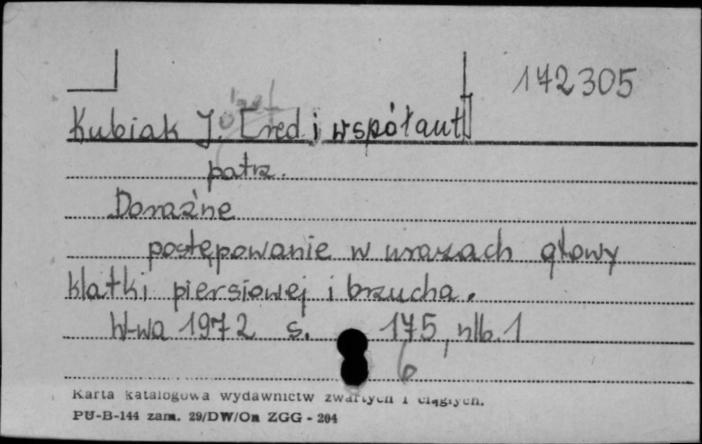 172305
Kubiak J. [red i współaut]
patrz.
Doraźne
postępowanie w urazach głowy
klatki piersiowej i brzucha.
W-wa 1972 s. 175, nlb. 1
6
Karta katalogowa wydawnictw zwartych i ciągłych.
PU-B-144 zam. 29/DW/On ZGG - 204